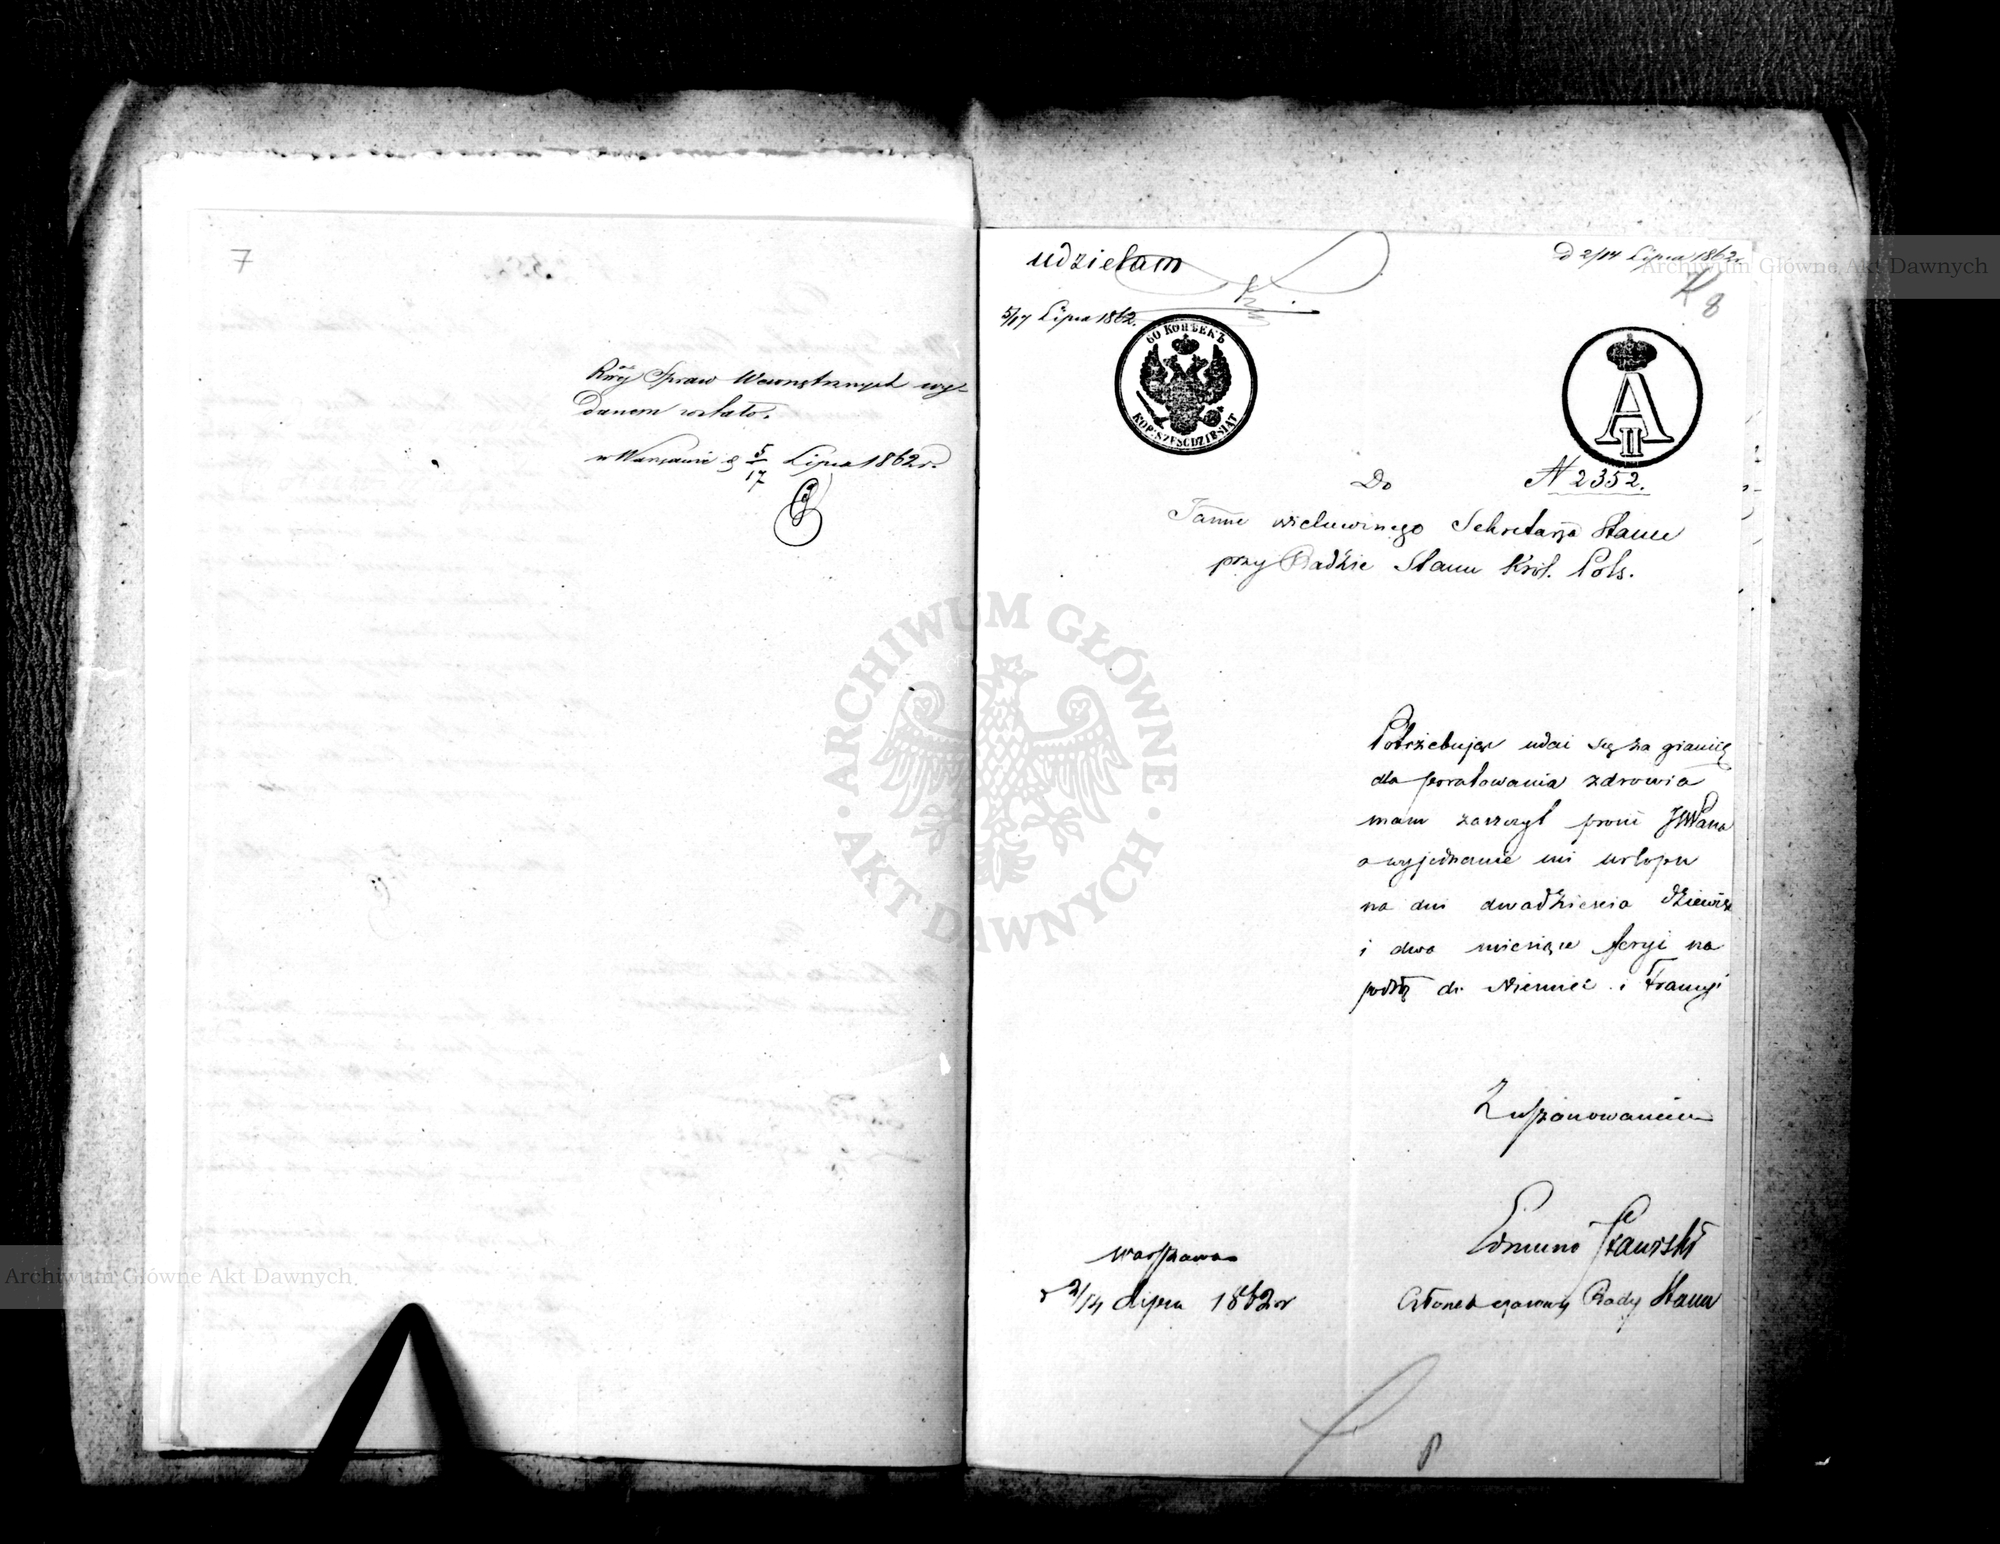 7
Spraw Wewnętrznych wy-
danem zostało.
w Warszawie d 5/17 Lipca 1862 r.
udzielam
5/17 Lipca 1862.
D 2/14 Lipca 1862 r.
8
60 КОПѢЕКЪ
KOP: SZEŚĆDZIESIĄT
A II
N 2352.
Do
Jaśnie wielmożnego Sekretarza Stanu
przy Radzie Stanu Król. Pols.
Potrzebując udać się za granicę
dla poratowania zdrowia
mam zaszczyt prosić JWPana
o wyjednanie mi urlopu
na dni dwadzieścia dziewięć
i dwa miesiące feryi na
podróż do Niemiec i Francyi
Z uszanowaniem
Edmund Stawiski
Członek czasowy Rady Stanu
Warszawa
d 2/14 Lipca 1862 r
ARCHIWUM GŁÓWNE · AKT DAWNYCH ·
Archiwum Główne Akt Dawnych
Archiwum Główne Akt Dawnych